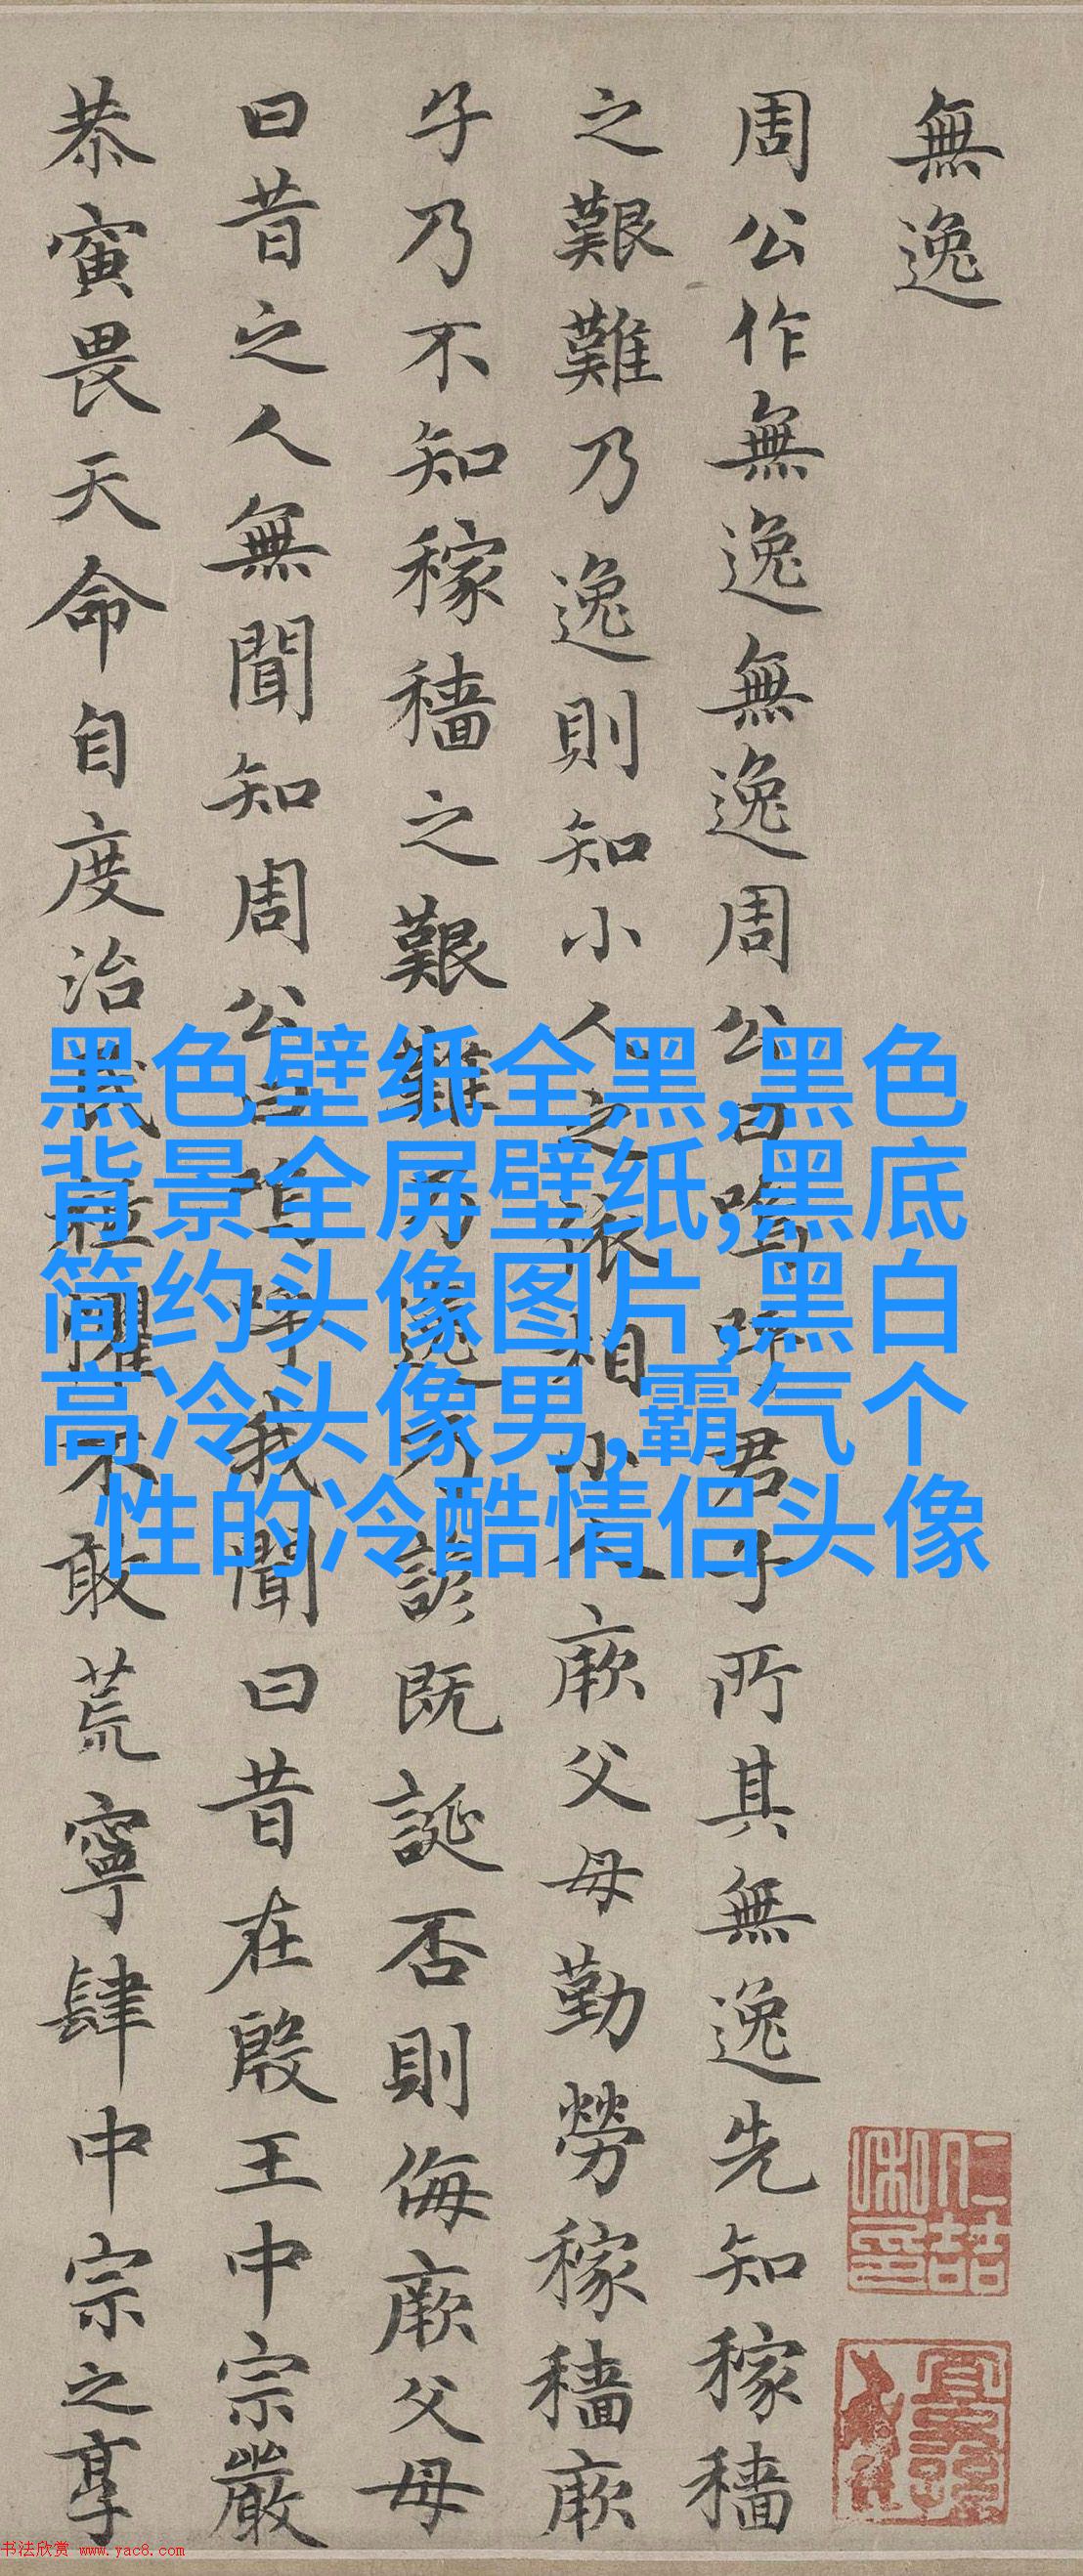 無逸
周公作無逸無逸周公曰嗚呼君子所其無逸先知稼穡
之艱難乃逸則知小人之依相小人厥父母勤勞稼穡厥
子乃不知稼穡之艱難乃逸乃諺既誕否則侮厥父母
曰昔之人無聞知周公曰嗚呼我聞曰昔在殷王中宗嚴
恭寅畏天命自度治民祗懼不敢荒寧肆中宗之享
黑色壁纸全黑,黑色
背景全屏壁纸,黑底
简约头像图片,黑白
高冷头像男,霸气个
性的冷酷情侣头像
书法欣赏 www.yac8.com